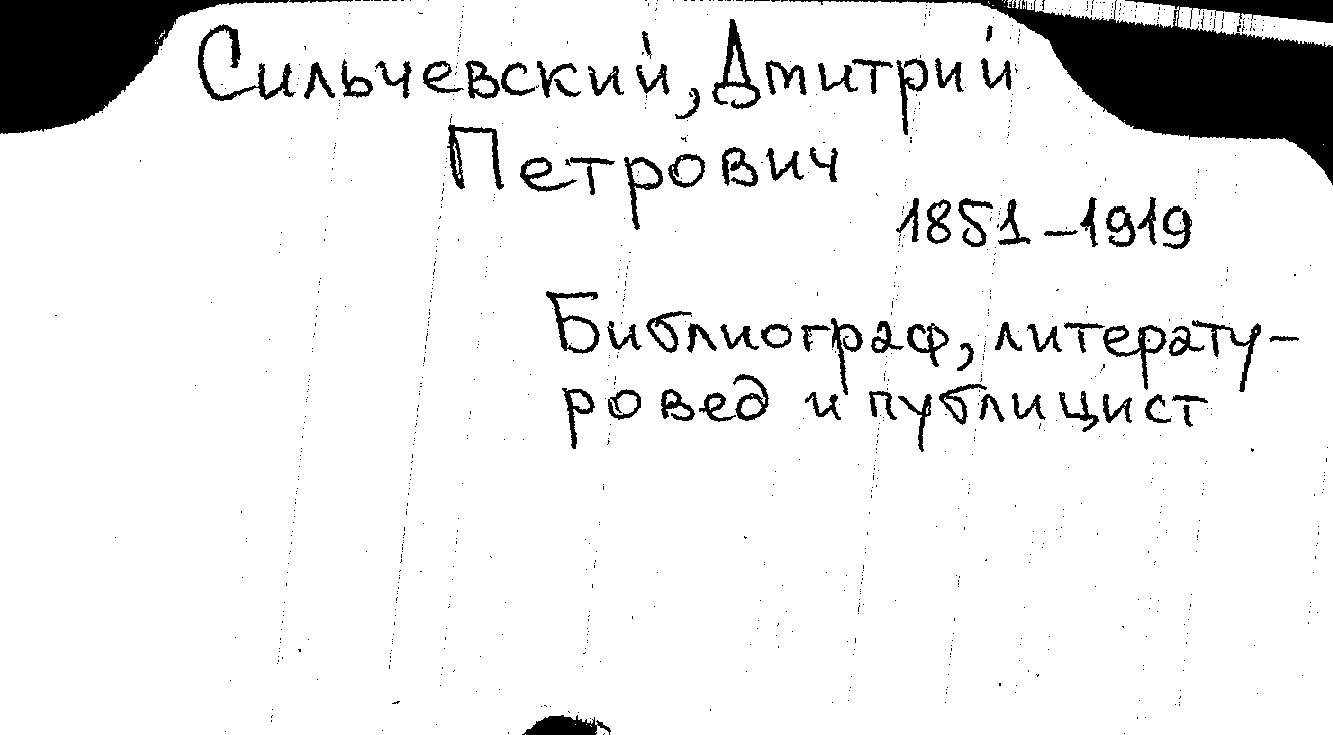 Сильчевский, Дмитрий
Петрович
1851-1919
Библиограф, литерату-
ровед и публицист